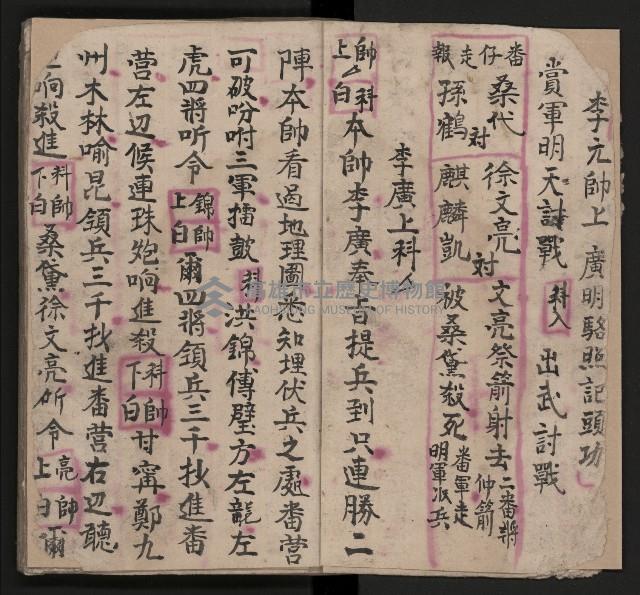 李元帥上 廣明駱照記頭功
賞軍明天討戰 科入 出武討戰
番仔走報 桑代對孫鶴 徐文亮對麒麟凱 文亮祭箭射去二番將仲箭 破桑黛殺死 番軍走明軍派兵
李廣上科介
帥上介科白 本帥李廣奉旨提兵到只連勝二
陣本帥看過地理圖 知埋伏兵之處番营
可破吩咐三軍擂鼓 科 洪錦傅璧方左龍左
虎四將听令 錦帥上白 爾四將領兵三千抄進番
营左辺候連珠炮响進殺 科帥下白 甘寗鄭九
州木林喻昆領兵三千抄進番营右辺聽
响殺進 科帥下白 桑黛徐文亮听令 亮帥上白 爾
高雄市立歷史博物館
KAOHSIUNG MUSEUM OF HISTORY